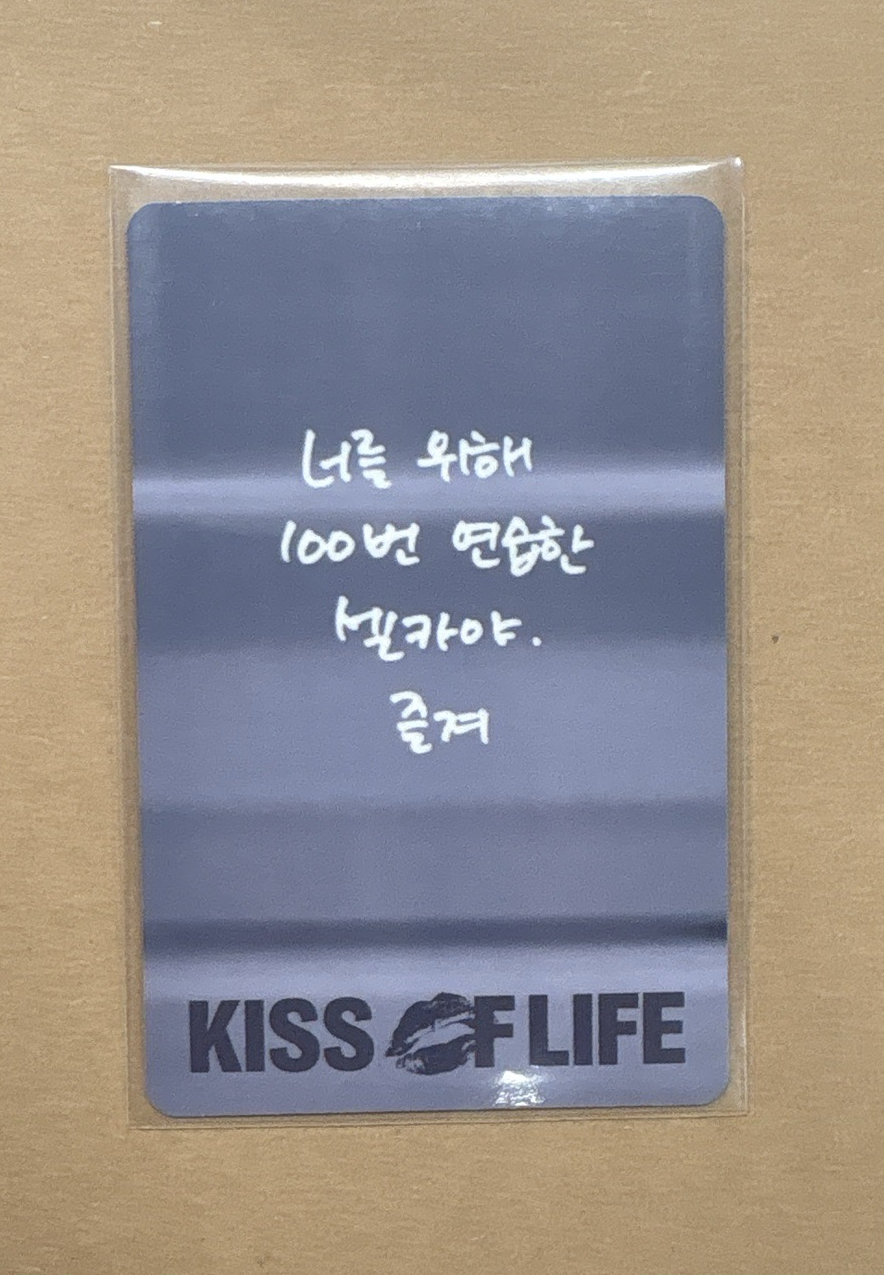 너를 위해
100번 연습한
셀카야.
즐겨
KISS OF LIFE